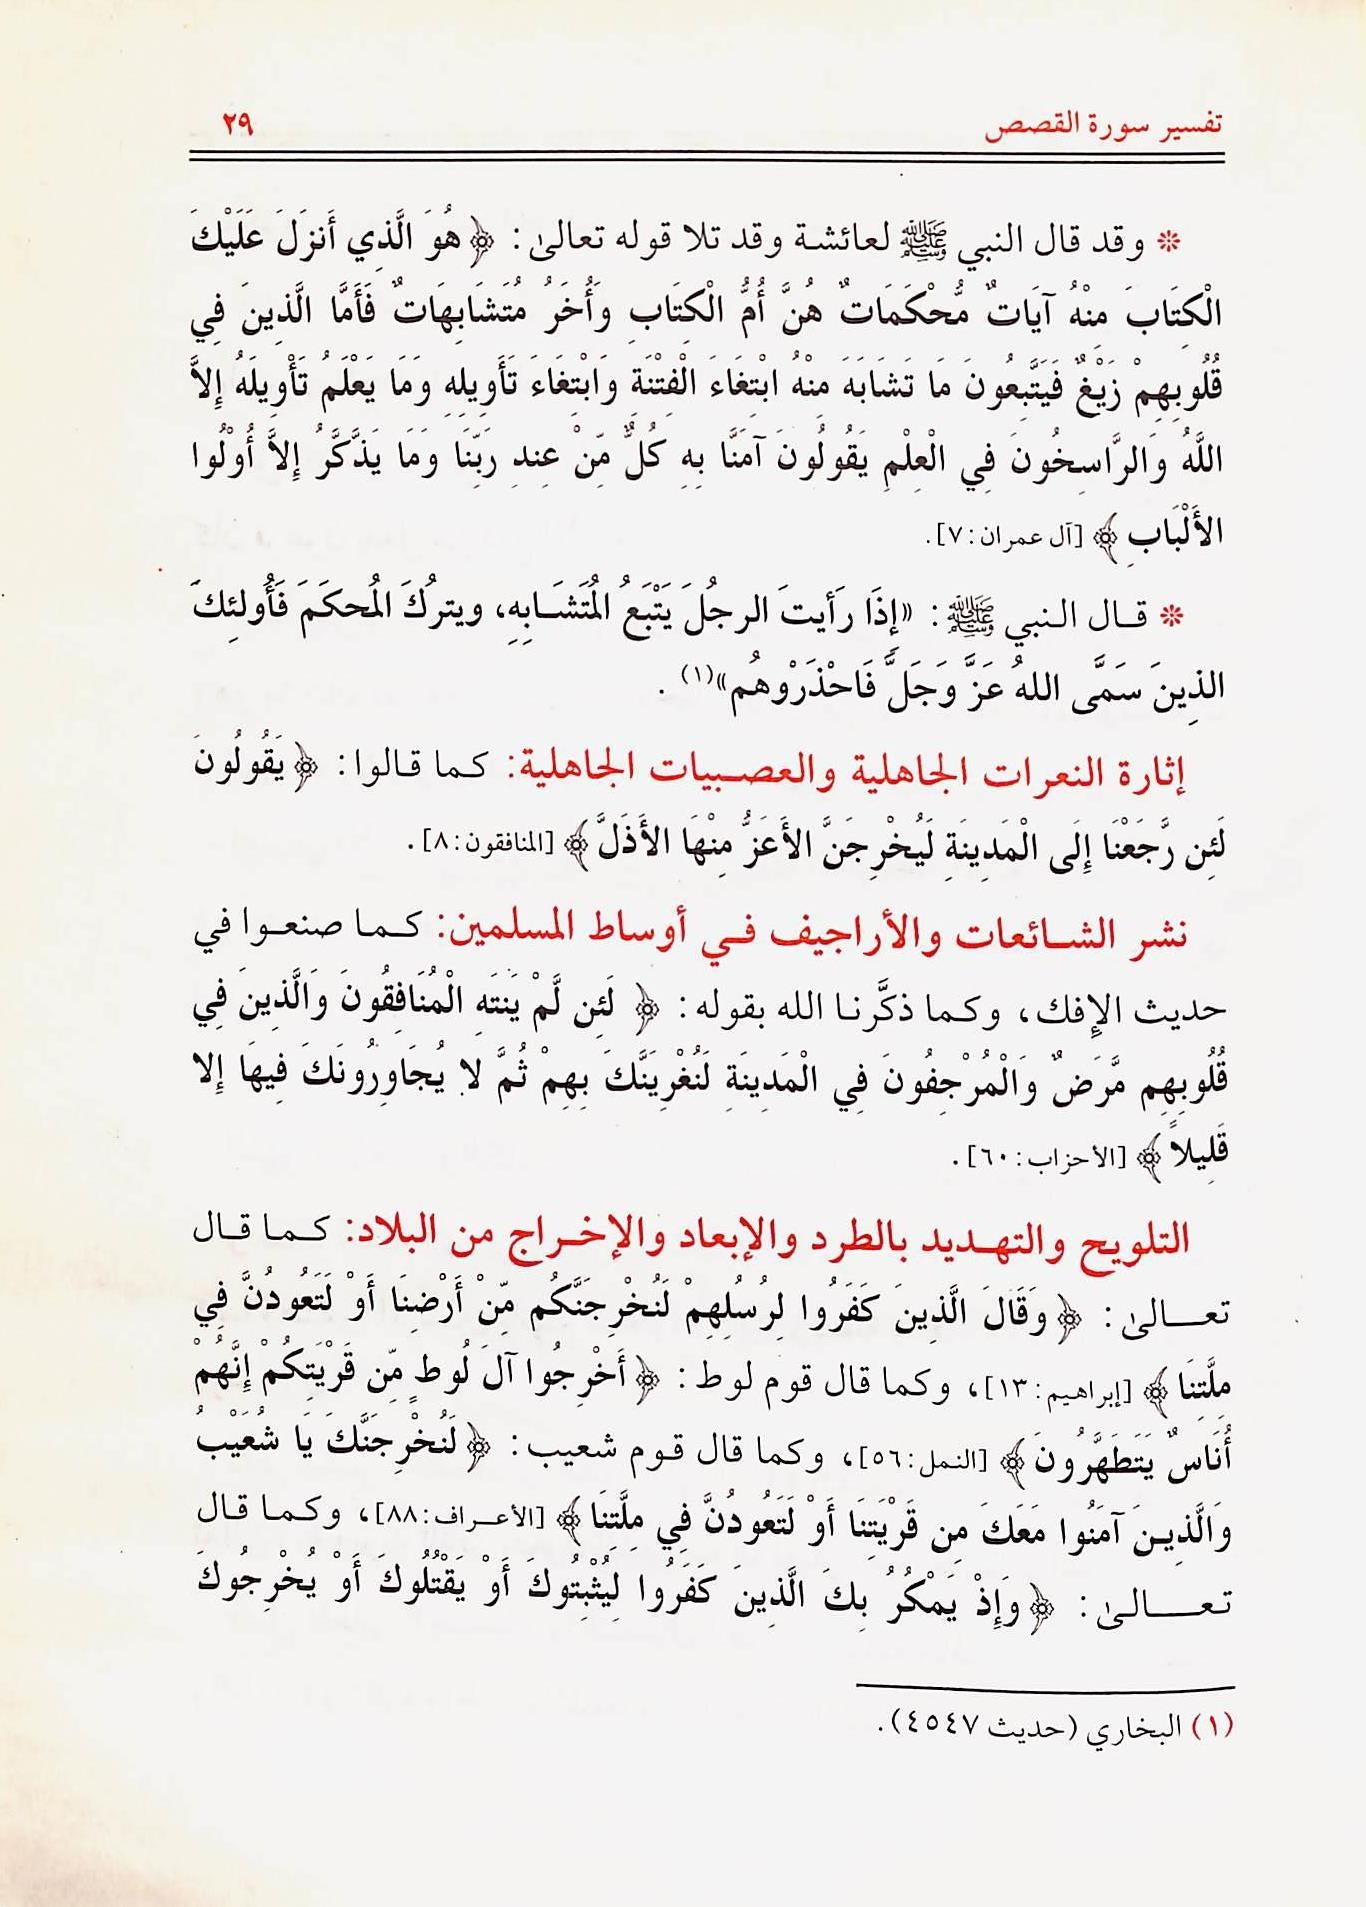 تفسير سورة القصص ٢٩
* وقد قال النبي ﷺ لعائشة وقد تلا قوله تعالىٰ: ﴿هُوَ الَّذِي أَنزَلَ عَلَيْكَ
الْكِتَابَ مِنْهُ آيَاتٌ مُّحْكَمَاتٌ هُنَّ أُمُّ الْكِتَابِ وَأُخَرُ مُتَشَابِهَاتٌ فَأَمَّا الَّذِينَ فِي
قُلُوبِهِمْ زَيْغٌ فَيَتَّبِعُونَ مَا تَشَابَهَ مِنْهُ ابْتِغَاءَ الْفِتْنَةِ وَابْتِغَاءَ تَأْوِيلِهِ وَمَا يَعْلَمُ تَأْوِيلَهُ إِلاَّ
اللَّهُ وَالرَّاسِخُونَ فِي الْعِلْمِ يَقُولُونَ آمَنَّا بِهِ كُلٌّ مِّنْ عِندِ رَبِّنَا وَمَا يَذَّكَّرُ إِلاَّ أُوْلُوا
الأَلْبَابِ﴾ [آل عمران: ٧].
* قال النبي ﷺ: «إِذَا رَأيتَ الرجُلَ يَتْبَعُ المُتَشَابِهِ، ويتركُ المُحكَمَ فَأُولئِكَ
الذِينَ سَمَّى اللهُ عَزَّ وَجَلَّ فَاحْذَرْوهُم»(١).
إثارة النعرات الجاهلية والعصبيات الجاهلية: كما قالوا: ﴿يَقُولُونَ
لَئِن رَّجَعْنَا إِلَى الْمَدِينَةِ لَيُخْرِجَنَّ الأَعَزُّ مِنْهَا الأَذَلَّ﴾ [المنافقون: ٨].
نشر الشائعات والأراجيف في أوساط المسلمين: كما صنعوا في
حديث الإفك، وكما ذكَّرنا الله بقوله: ﴿لَئِن لَّمْ يَنتَهِ الْمُنَافِقُونَ وَالَّذِينَ فِي
قُلُوبِهِم مَّرَضٌ وَالْمُرْجِفُونَ فِي الْمَدِينَةِ لَنُغْرِيَنَّكَ بِهِمْ ثُمَّ لا يُجَاوِرُونَكَ فِيهَا إِلا
قَلِيلاً﴾ [الأحزاب: ٦٠].
التلويح والتهديد بالطرد والإبعاد والإخراج من البلاد: كما قال
تعالىٰ: ﴿وَقَالَ الَّذِينَ كَفَرُوا لِرُسُلِهِمْ لَنُخْرِجَنَّكُم مِّنْ أَرْضِنَا أَوْ لَتَعُودُنَّ فِي
مِلَّتِنَا﴾ [إبراهيم: ١٣]، وكما قال قوم لوط: ﴿أَخْرِجُوا آلَ لُوطٍ مِّن قَرْيَتِكُمْ إِنَّهُمْ
أُنَاسٌ يَتَطَهَّرُونَ﴾ [النمل: ٥٦]، وكما قال قوم شعيب: ﴿لَنُخْرِجَنَّكَ يَا شُعَيْبُ
وَالَّذِينَ آمَنُوا مَعَكَ مِن قَرْيَتِنَا أَوْ لَتَعُودُنَّ فِي مِلَّتِنَا﴾ [الأعراف: ٨٨]، وكما قال
تعالىٰ: ﴿وَإِذْ يَمْكُرُ بِكَ الَّذِينَ كَفَرُوا لِيُثْبِتُوكَ أَوْ يَقْتُلُوكَ أَوْ يُخْرِجُوكَ
(١) البخاري (حديث ٤٥٤٧).